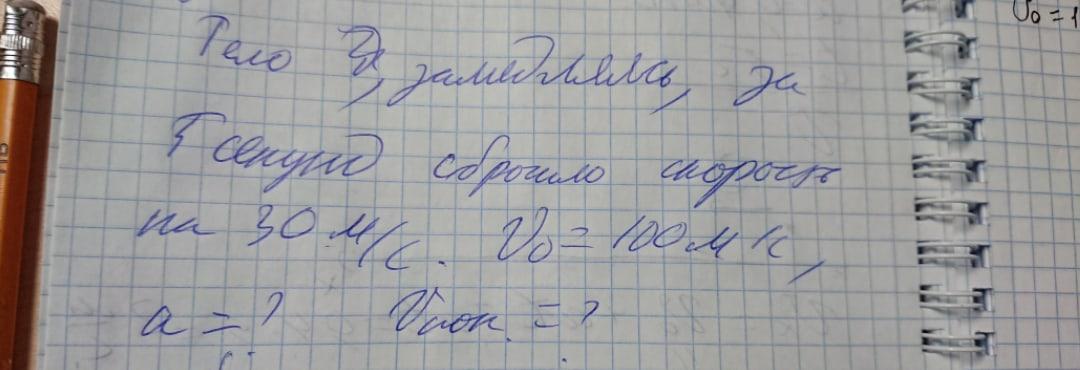 Тело замедляясь, за
секунд сбросило скорость
на 30 м/с. V₀ = 100 м/с,
a = ? Vкон. = ?
V₀ = 1